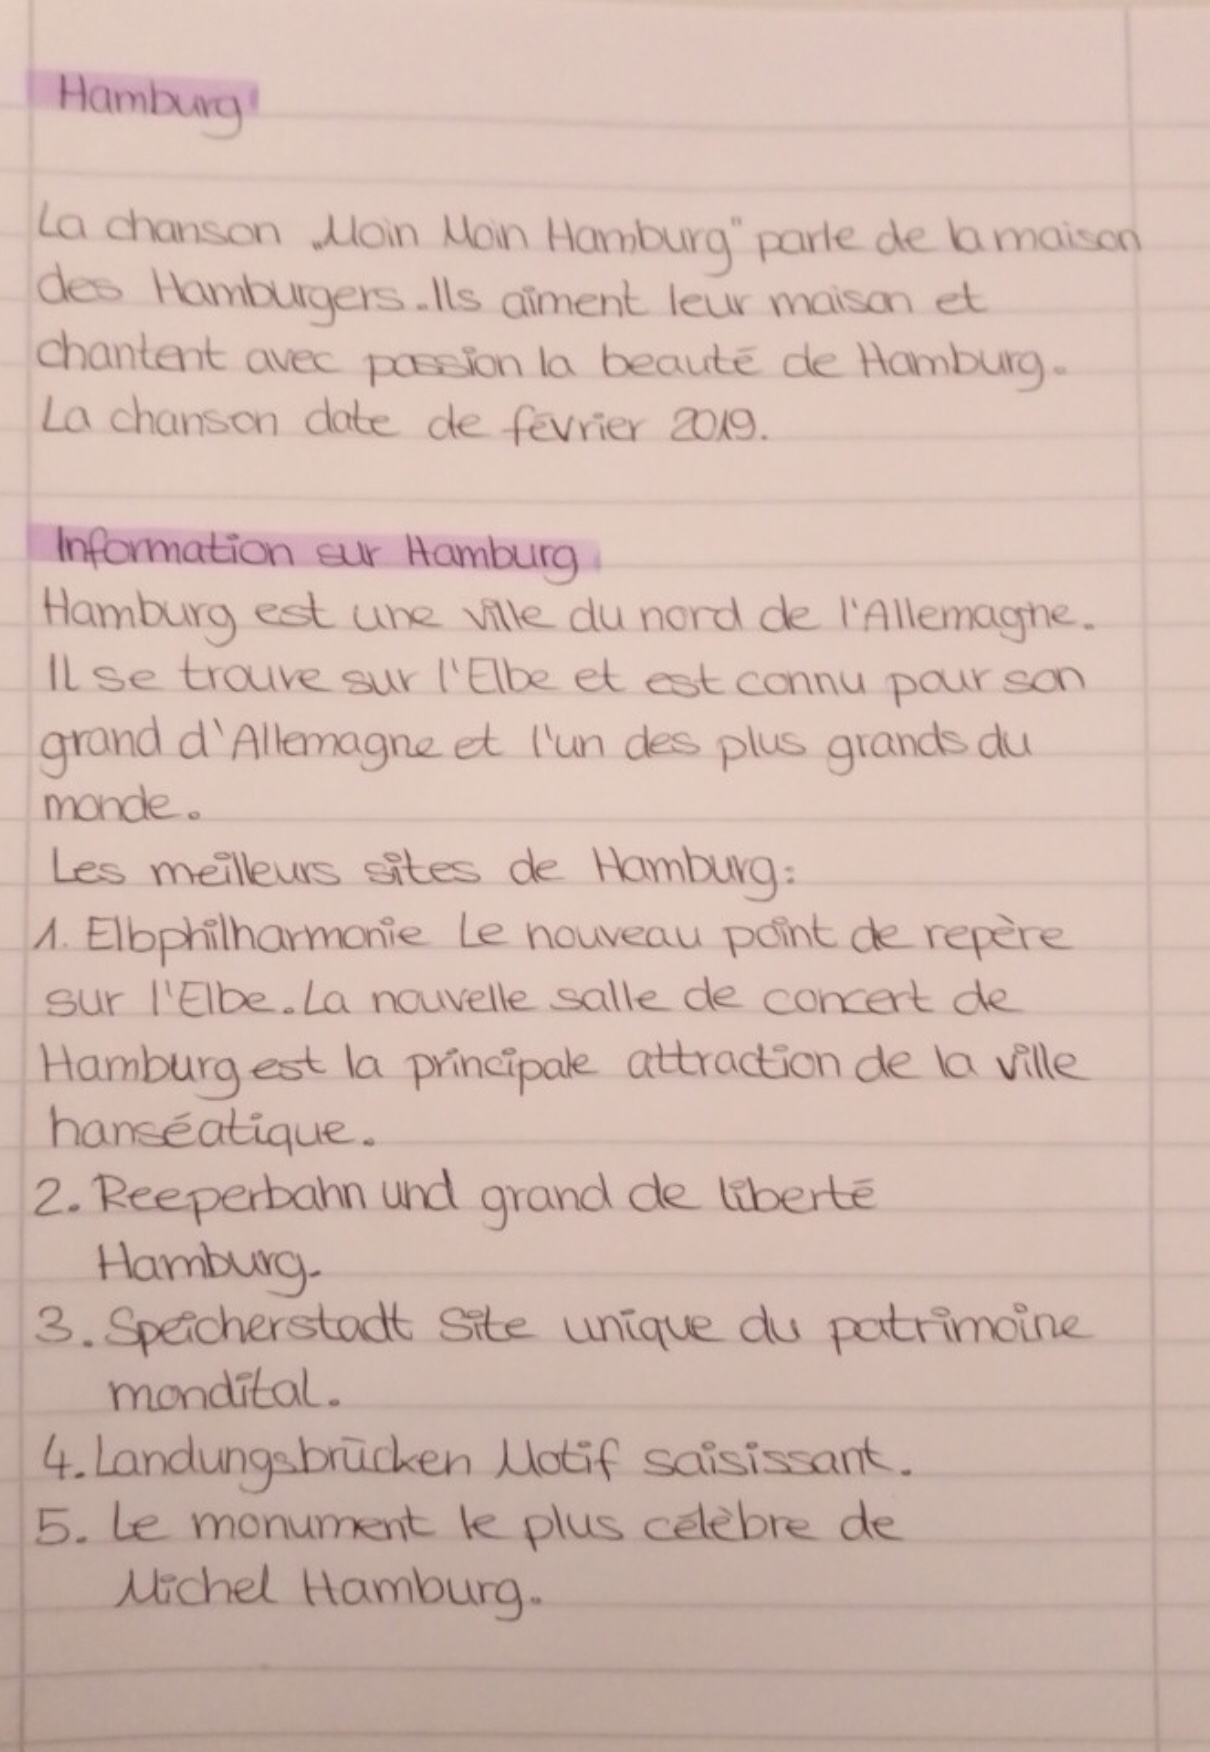 Hamburg
La chanson „Moin Moin Hamburg" parle de la maison
des Hamburgers. Ils aiment leur maison et
chantent avec passion la beauté de Hamburg.
La chanson date de février 2019.
Information sur Hamburg
Hamburg est une ville du nord de l'Allemagne.
Il se trouve sur l'Elbe et est connu pour son
grand d'Allemagne et l'un des plus grands du
monde.
Les meilleurs sites de Hamburg:
1. Elbphilharmonie Le nouveau point de repère
sur l'Elbe. La nouvelle salle de concert de
Hamburg est la principale attraction de la ville
hanséatique.
2. Reeperbahn und grand de liberté
Hamburg.
3. Speicherstadt Site unique du patrimoine
mondital.
4. Landungsbrücken Motif saisissant.
5. Le monument le plus célèbre de
Michel Hamburg.